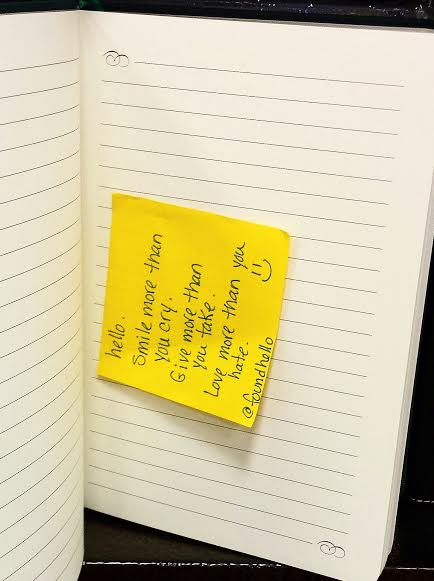 hello.
Smile more than
you cry.
Give more than
you take.
Love more than you
hate. :)
@foundhello